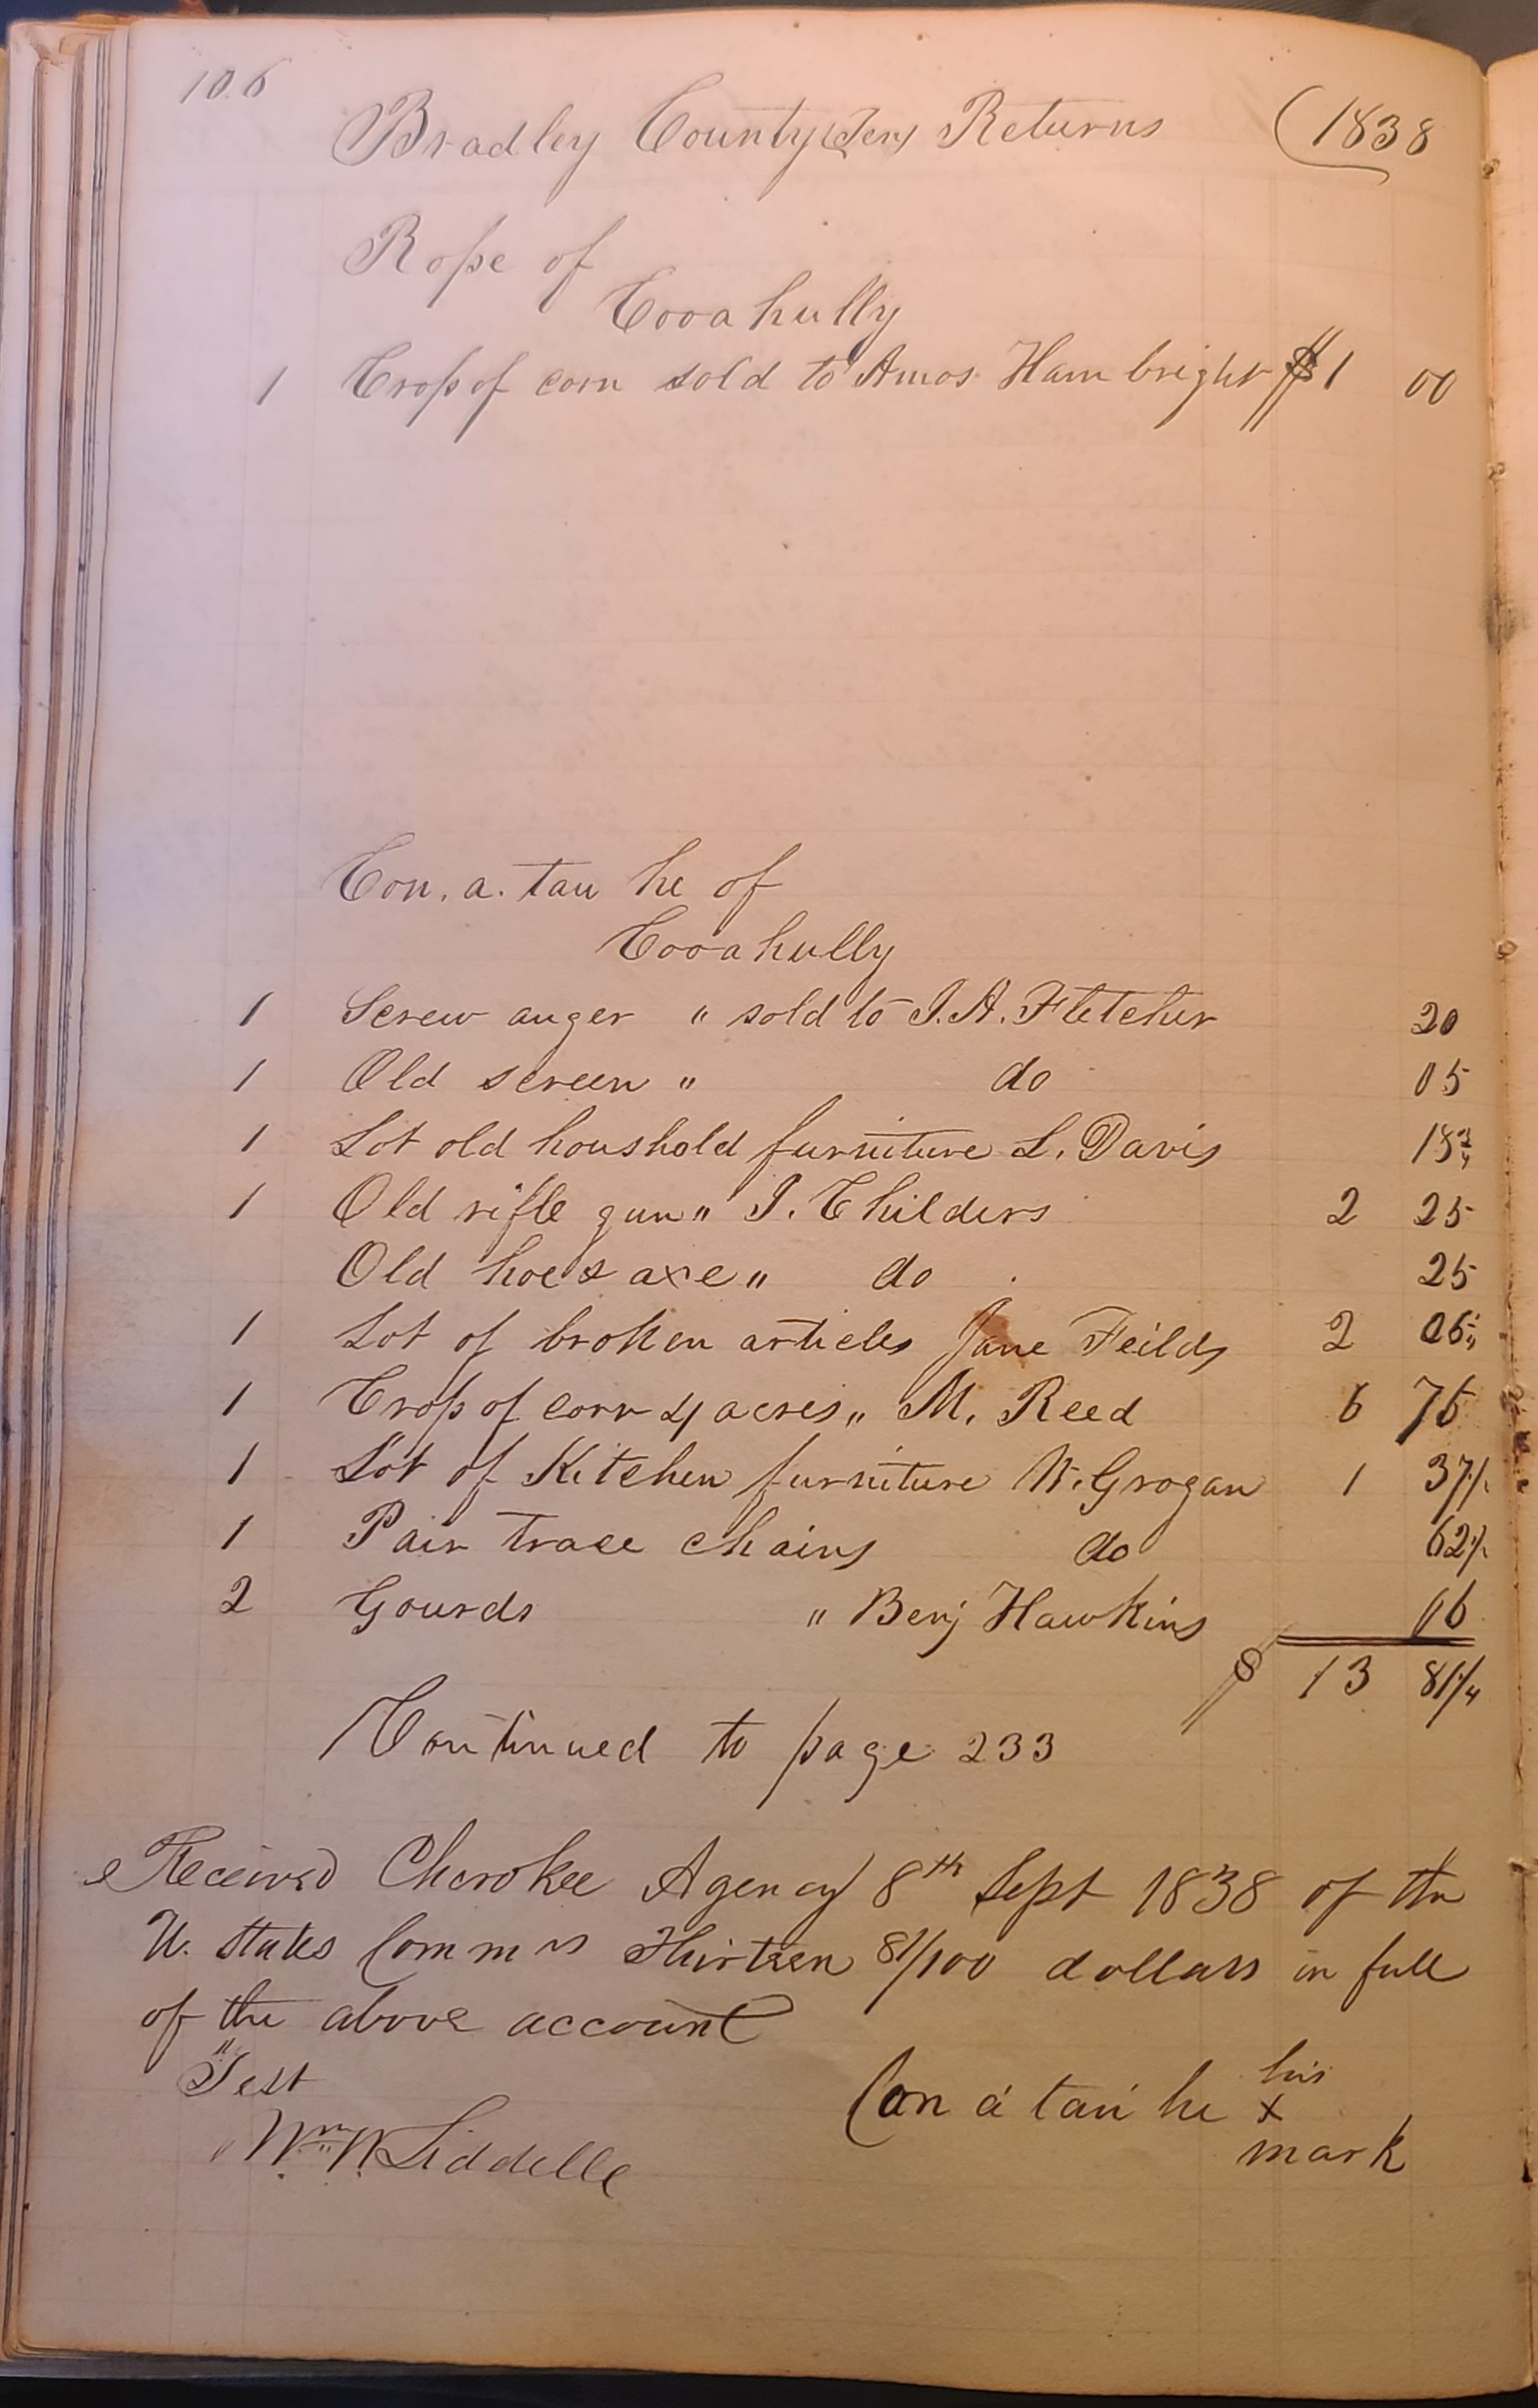 106
Bradley County Ten Returns (1838
Rope of
Cooahully
1 Crop of corn sold to Amos Hambright $1 00
Con. a. tau he of
Cooahully
1 Screw auger " sold to J. A. Fletcher 20
1 Old screen " do 05
1 Lot old houshold furniture L. Davis 18 3/4
1 Old rifle gun " J. Childers 2 25
Old hoe & axe " do 25
1 Lot of broken articles Jane Feilds 2
1 Crop of corn 4 acres " M. Reed 6 75
1 Lot of Kitchen furniture W. Grogan 1 37 1/2
1 Pair trace chains do 62 1/2
2 Gourds " Benj Hawkins 06
$ 13 81 1/4
Continued to page 233
Received Cherokee Agency 8th Sept 1838 of the
U. States Commrs Thirteen 81/100 dollars in full
of the above account
Test
his
Con á taú he x
mark
Wm W Liddelle